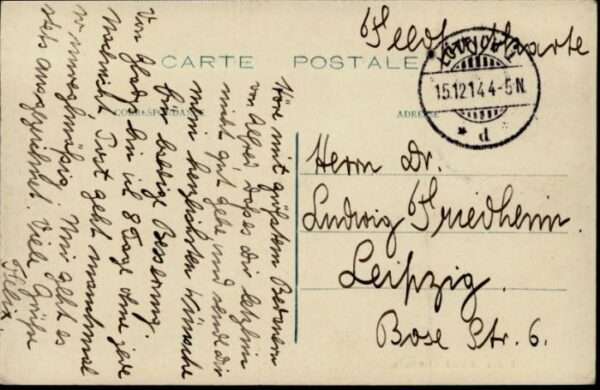 Feldpostkarte
CARTE POSTALE
15.12.14 4-5N.
d
CORRESPONDANCE
ADRESSE
Herrn Dr.
Ludwig Friedheim.
Leipzig.
Bose Str. 6.
Höre mit größtem Bedauern
von Alfred, daß es Dir letzthin
nicht gut gehe und sende Dir
meine herzlichsten Wünsche
für baldige Besserung.
Von Gladys bin ich 8 Tage ohne jede
Nachricht. Post geht manchmal
so unregelmäßig. Mir geht es
stets ausgezeichnet. Viele Grüße
Felix.